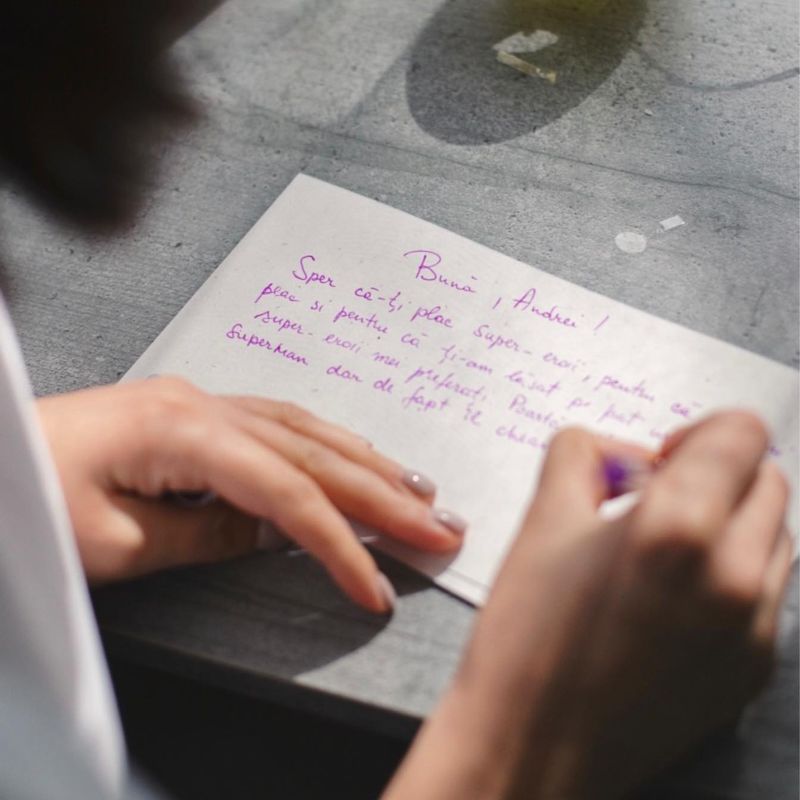 Bună , Andrei !
Sper că-ți plac super-eroii, pentru că
plac si pentru că ți-am lăsat pe pat
super-eroii mei preferați. Poartă
Superman dar de fapt îl cheamă